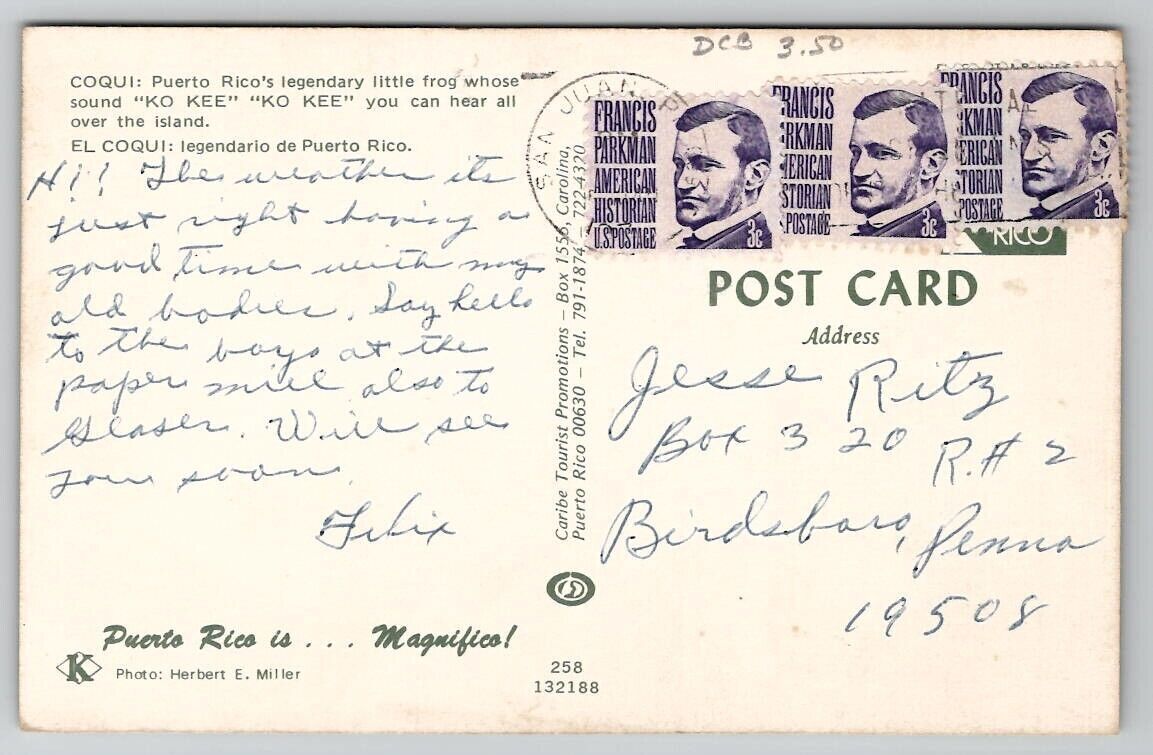 DCB 3.50
COQUI: Puerto Rico's legendary little frog whose
sound "KO KEE" "KO KEE" you can hear all
over the island.
EL COQUI: legendario de Puerto Rico.
Hi! The weather its
just right having a
good time with my
old bodies. Say hello
to the boys at the
paper mill also to
Glaser. Will see
you soon.
Felix
Puerto Rico is . . . Magnifico!
K
Photo: Herbert E. Miller
Caribe Tourist Promotions – Box 1556, Carolina,
Puerto Rico 00630 – Tel. 791-1874 – 722-4320.
258
132188
SAN JUAN
FRANCIS
PARKMAN
AMERICAN
HISTORIAN
U.S.POSTAGE
3c
FRANCIS
PARKMAN
AMERICAN
HISTORIAN
POSTAGE
3c
FRANCIS
PARKMAN
AMERICAN
HISTORIAN
POSTAGE
3c
RICO
POST CARD
Address
Jesse Ritz
Box 320
R.#2
Birdsboro, Penna
19508